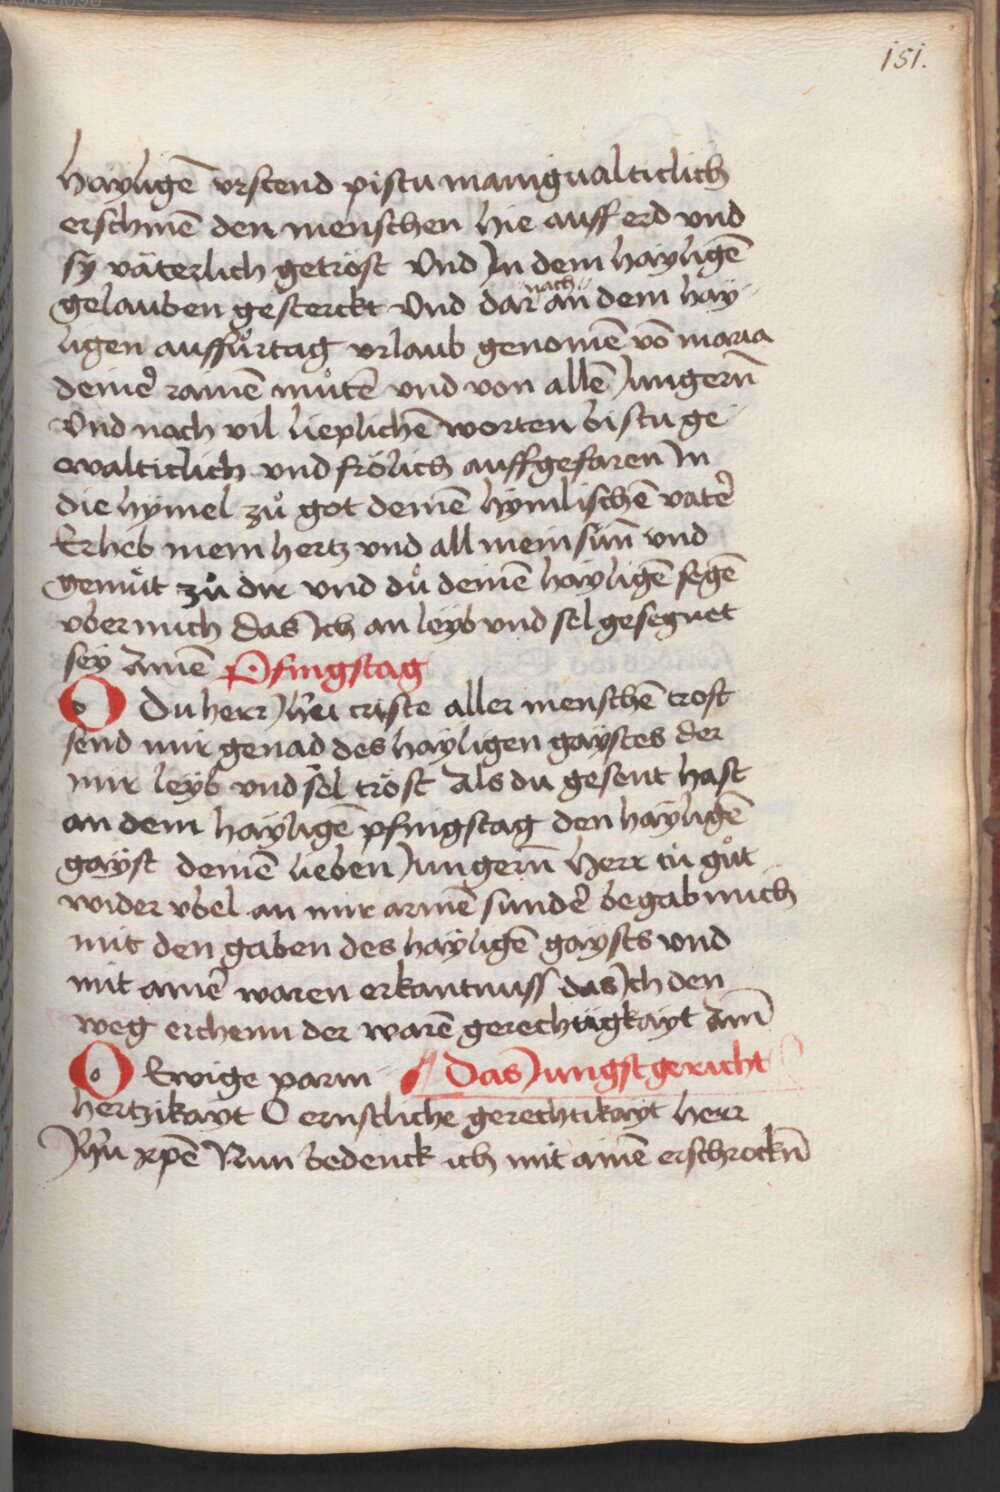 151.
hayligē vrstend pistu manigualticlich
erschinē den menschen hie auff erd vnd
sy väterlich getröst Vnd Jn dem hayligē
gelauben gesterckt Vnd dar nach an dem hay
ligen auffůrtag vrlaub genomē vō maria
deineꝛ rainē můtē vnd von allē Jungerñ
Vnd noch vil lieplichē worten bistu ge
walticlich vnd frölich auffgefaren Jn
die hymel zů got deinē hymlischē vateꝛ
Erheb mein hertz vnd all mein sun̄ vnd
gemůt zů dir vnd dů deinē hayligē segē
vber mich das Jch an leyb vnd sel gesegnet
sey Amē Pfingstag
O Du herr Jhū criste aller menschē trost
send mir genad des hayligen gaystes der
mir leyb vnd sel tröst Als du gesent hast
an dem hayligē pfingstag den hayligē
gayst deinē lieben Jungerñ herr tů gůt
wider vbel an mir armē sundeꝛ begab mich
mit den gaben des hayligē gaysts vnd
mit aineꝛ waren erkantnuss das Jch den
weg erchenn der warē gerechtigkayt Am̄
O Ewige parm Das Jungst gericht
hertzikayt O ernstliche gerechtikayt herr
Jhū xpē Nun bedenck ich mit ainē erschrockn̄